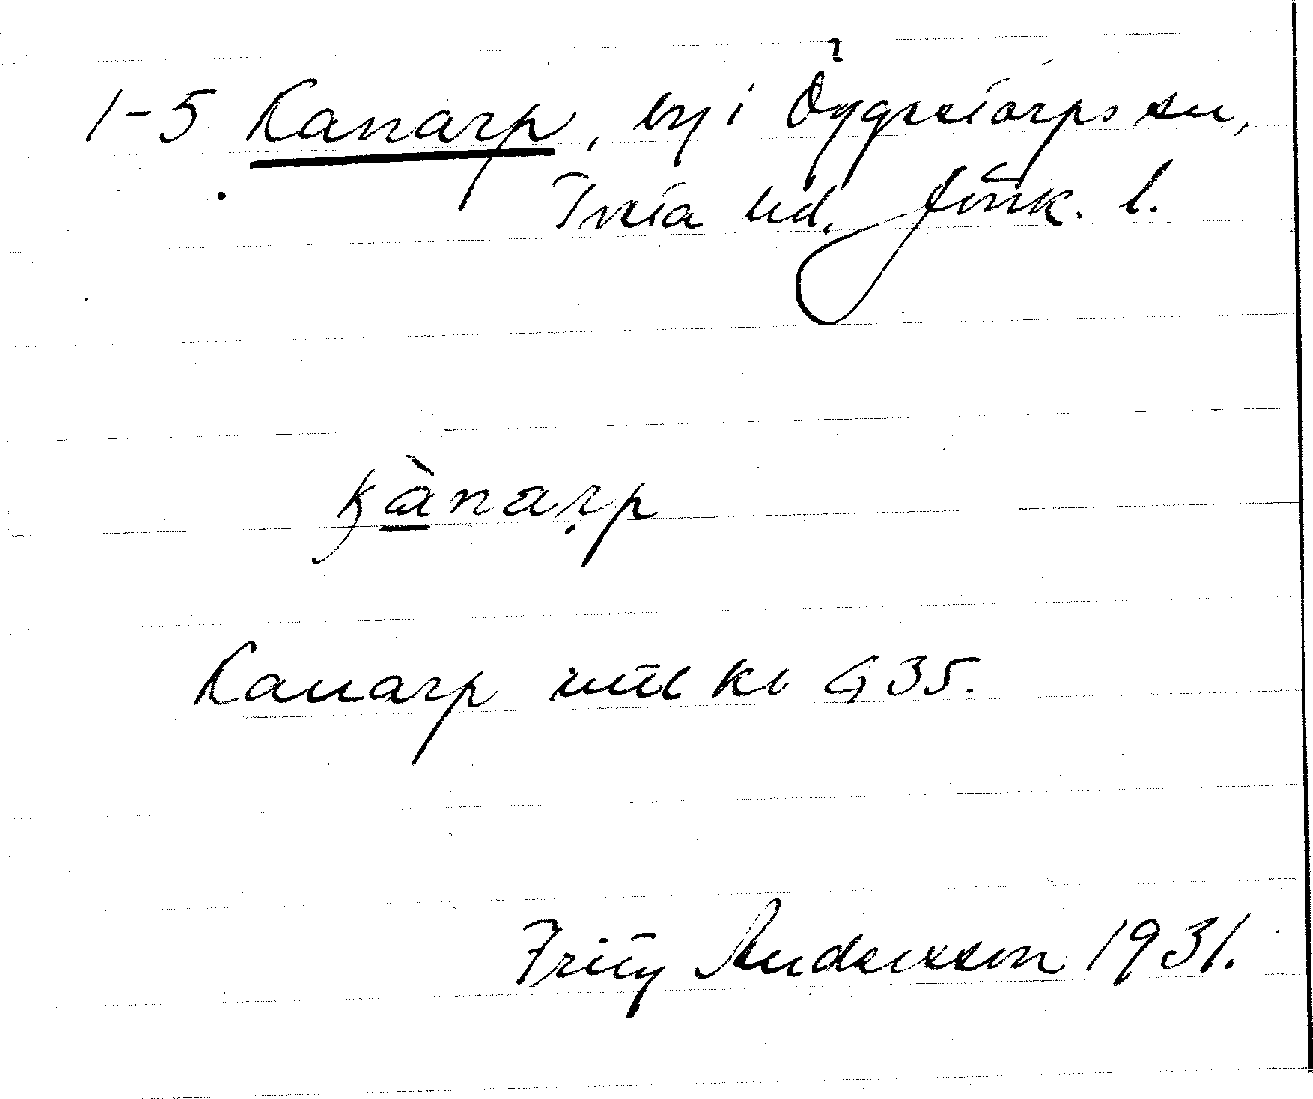 1-5 Kanarp, by i Öggestorps sn,
Tveta hd. Jönk. l.
kànarp
Kanarp uttl kb G 35.
Fritz Andersson 1931.